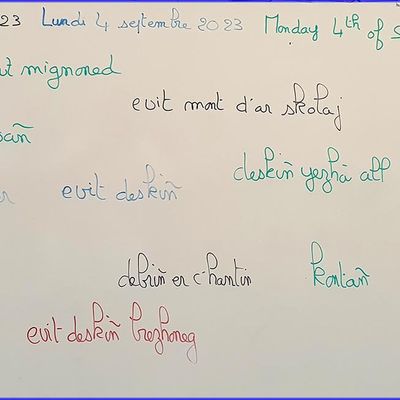 23 Lundi 4 septembre 2023 Monday 4th of S
ut mignoned
evit mont d'ar skolaj
deskiñ yezhà all
evit deskiñ
debriñ er c'hantin
kontañ
evit deskiñ brezhoneg